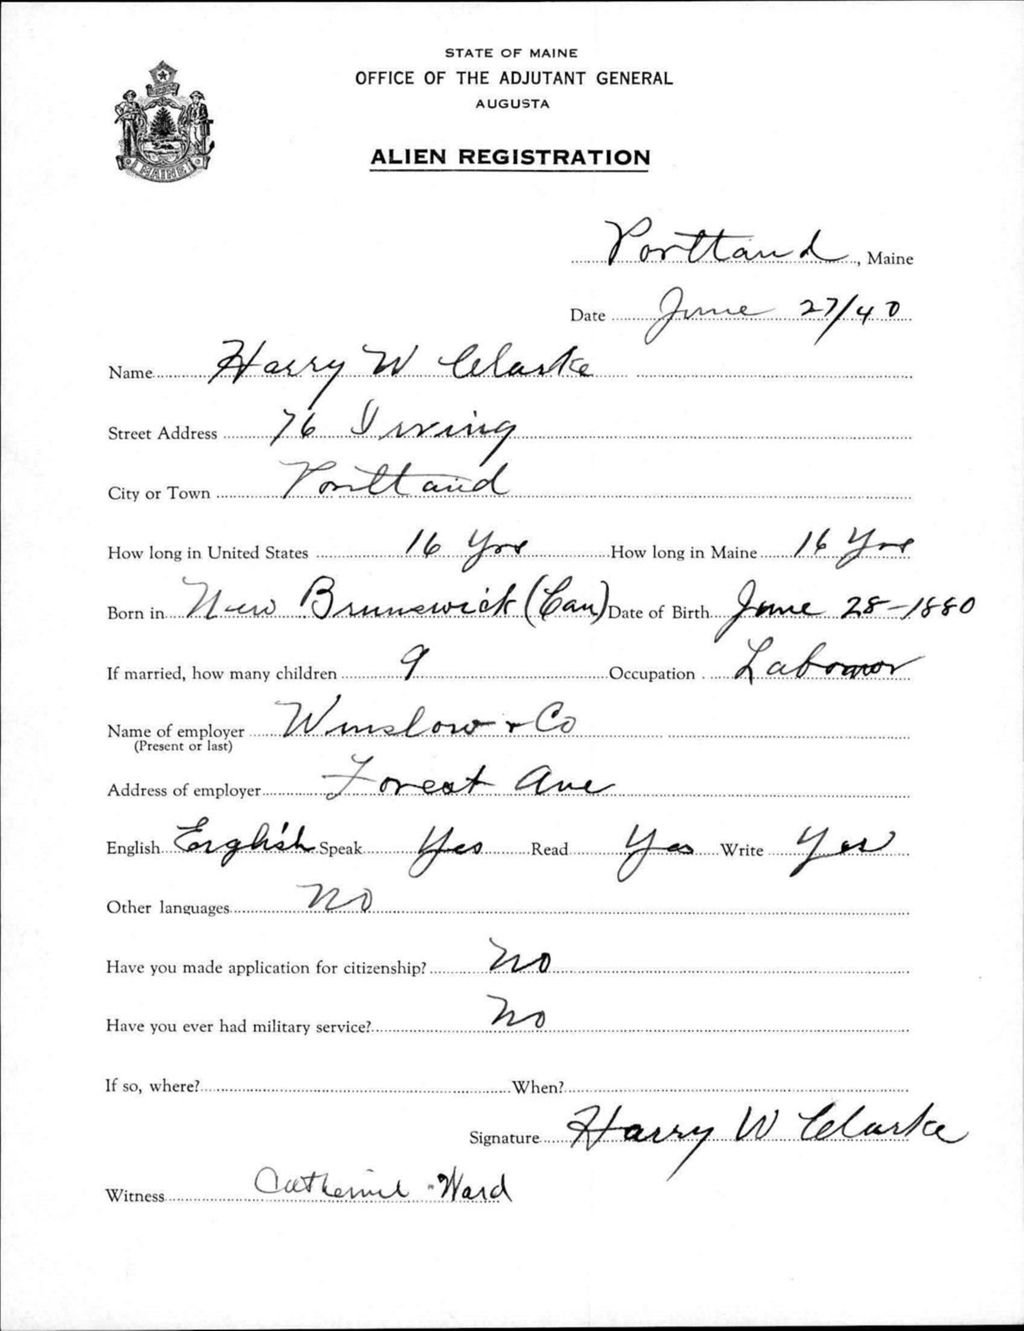 STATE OF MAINE
OFFICE OF THE ADJUTANT GENERAL
AUGUSTA
ALIEN REGISTRATION
MAINE
Portland, Maine
Date June 27/40
Name Harry W Clarke
Street Address 76 Irving
City or Town Portland
How long in United States 16 Yrs How long in Maine 16 Yrs
Born in New Brunswick (Can) Date of Birth June 28-1880
If married, how many children 9 Occupation Laboror
Name of employer Winslow & Co
(Present or last)
Address of employer Forest Ave
English English Speak Yes Read Yes Write Yes
Other languages No
Have you made application for citizenship? No
Have you ever had military service? No
If so, where? When?
Signature Harry W Clarke
Witness Catherine Ward